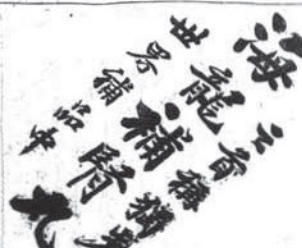 海龍補腎丸
世界補品中
之首稱獨